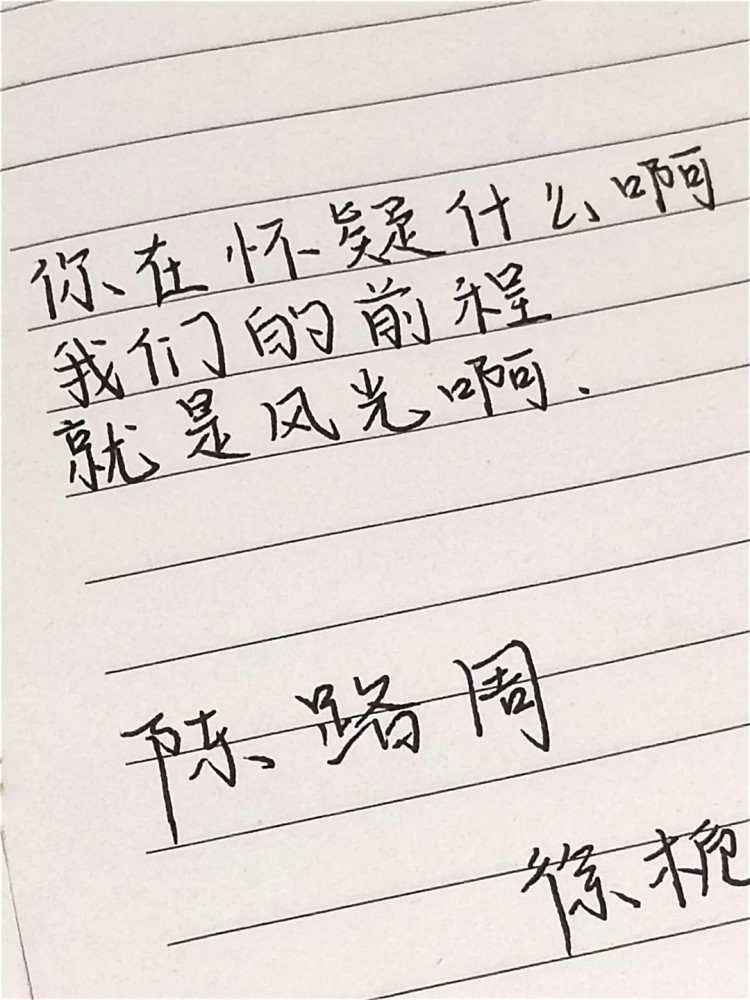 你在怀疑什么啊
我们的前程
就是风光啊.
陈路周
徐栀